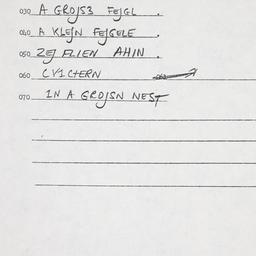 030 A GROJS3 FEJGL .
040 A KLEJN FEJGELE .
050 ZEJ FLIEN AHIN .
060 CVICHERN
070 IN A GROJSN NEST